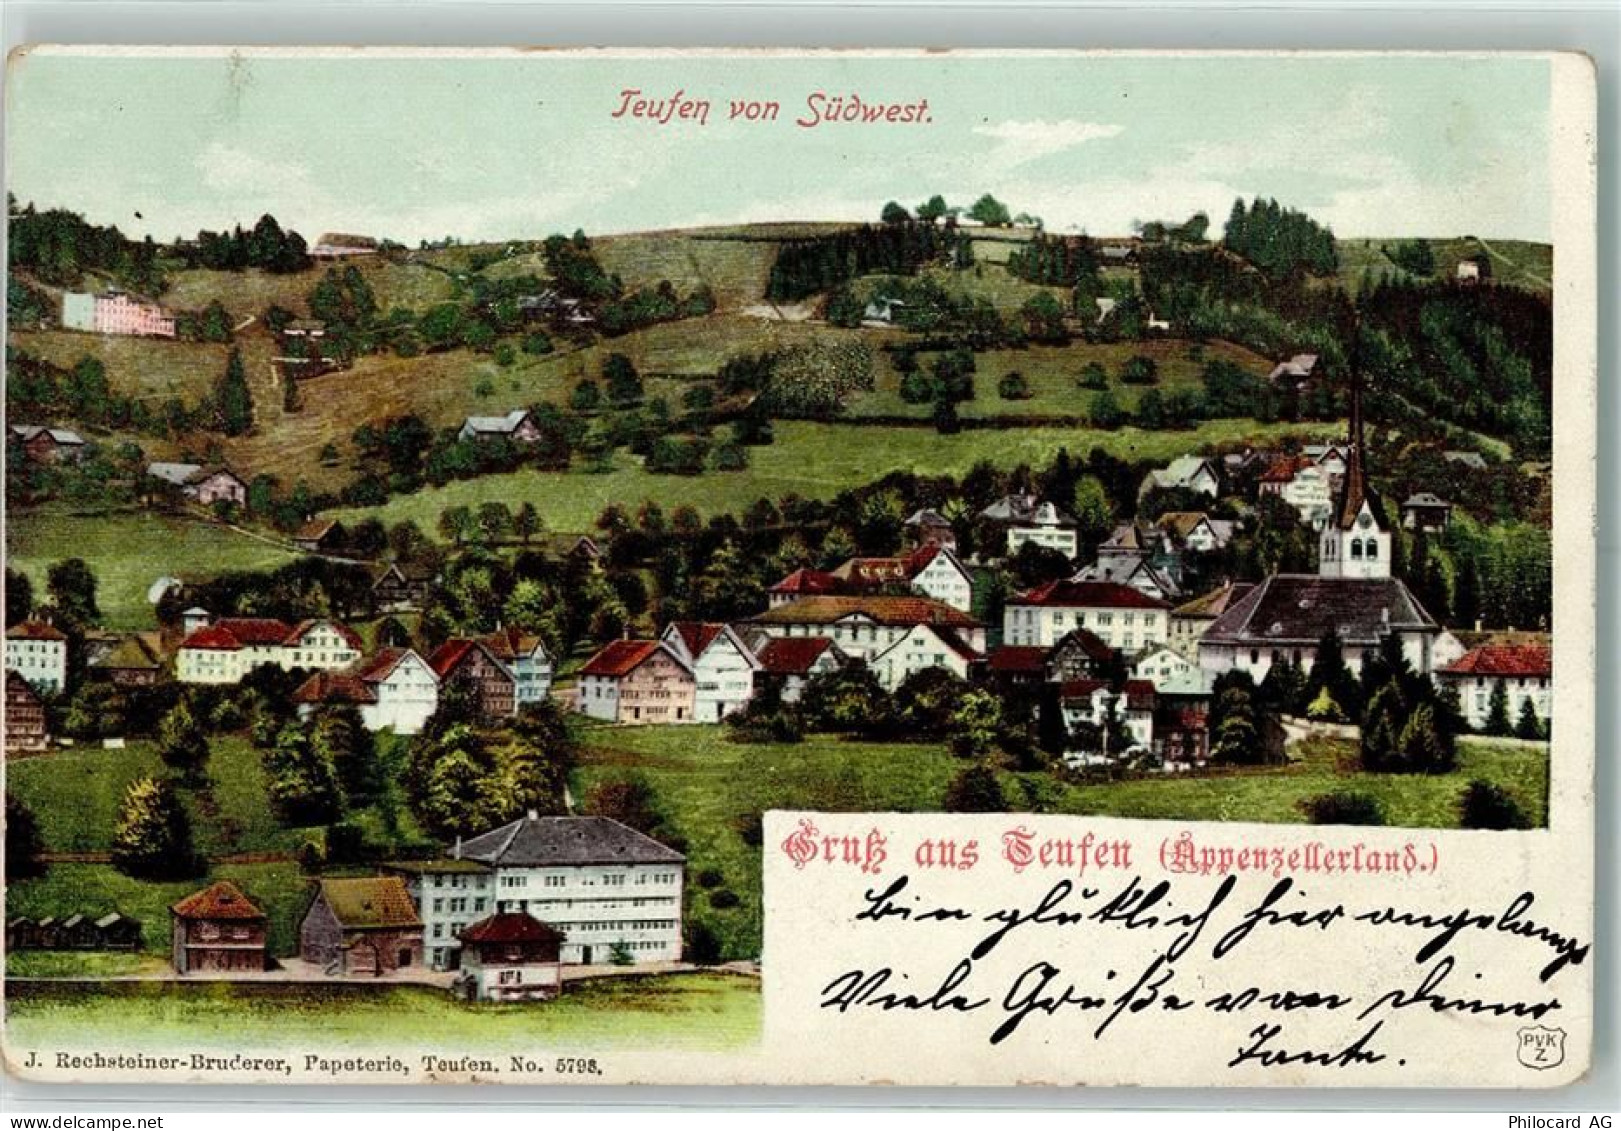 Teufen von Südwest.
Gruß aus Teufen (Appenzellerland.)
Bin glüklich hier angelangt
Viele Grüße von Deiner
Tante.
J. Rechsteiner-Bruderer, Papeterie, Teufen. No. 5798.
PVK
Z
Philocard AG